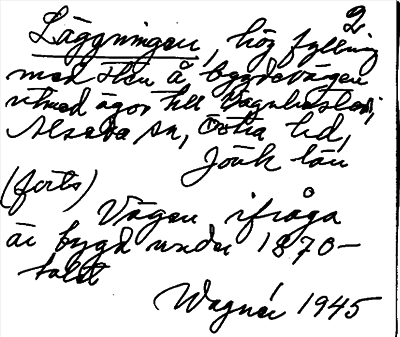 2
Läggningen, hög fyllning
med sten å bygdevägen
utmed ägor till Vagnhester,
Alseda sn, Östra hd,
Jönk län
(forts)
Vägen ifråga
är bygd under 1870-
talet
Wagnér 1945